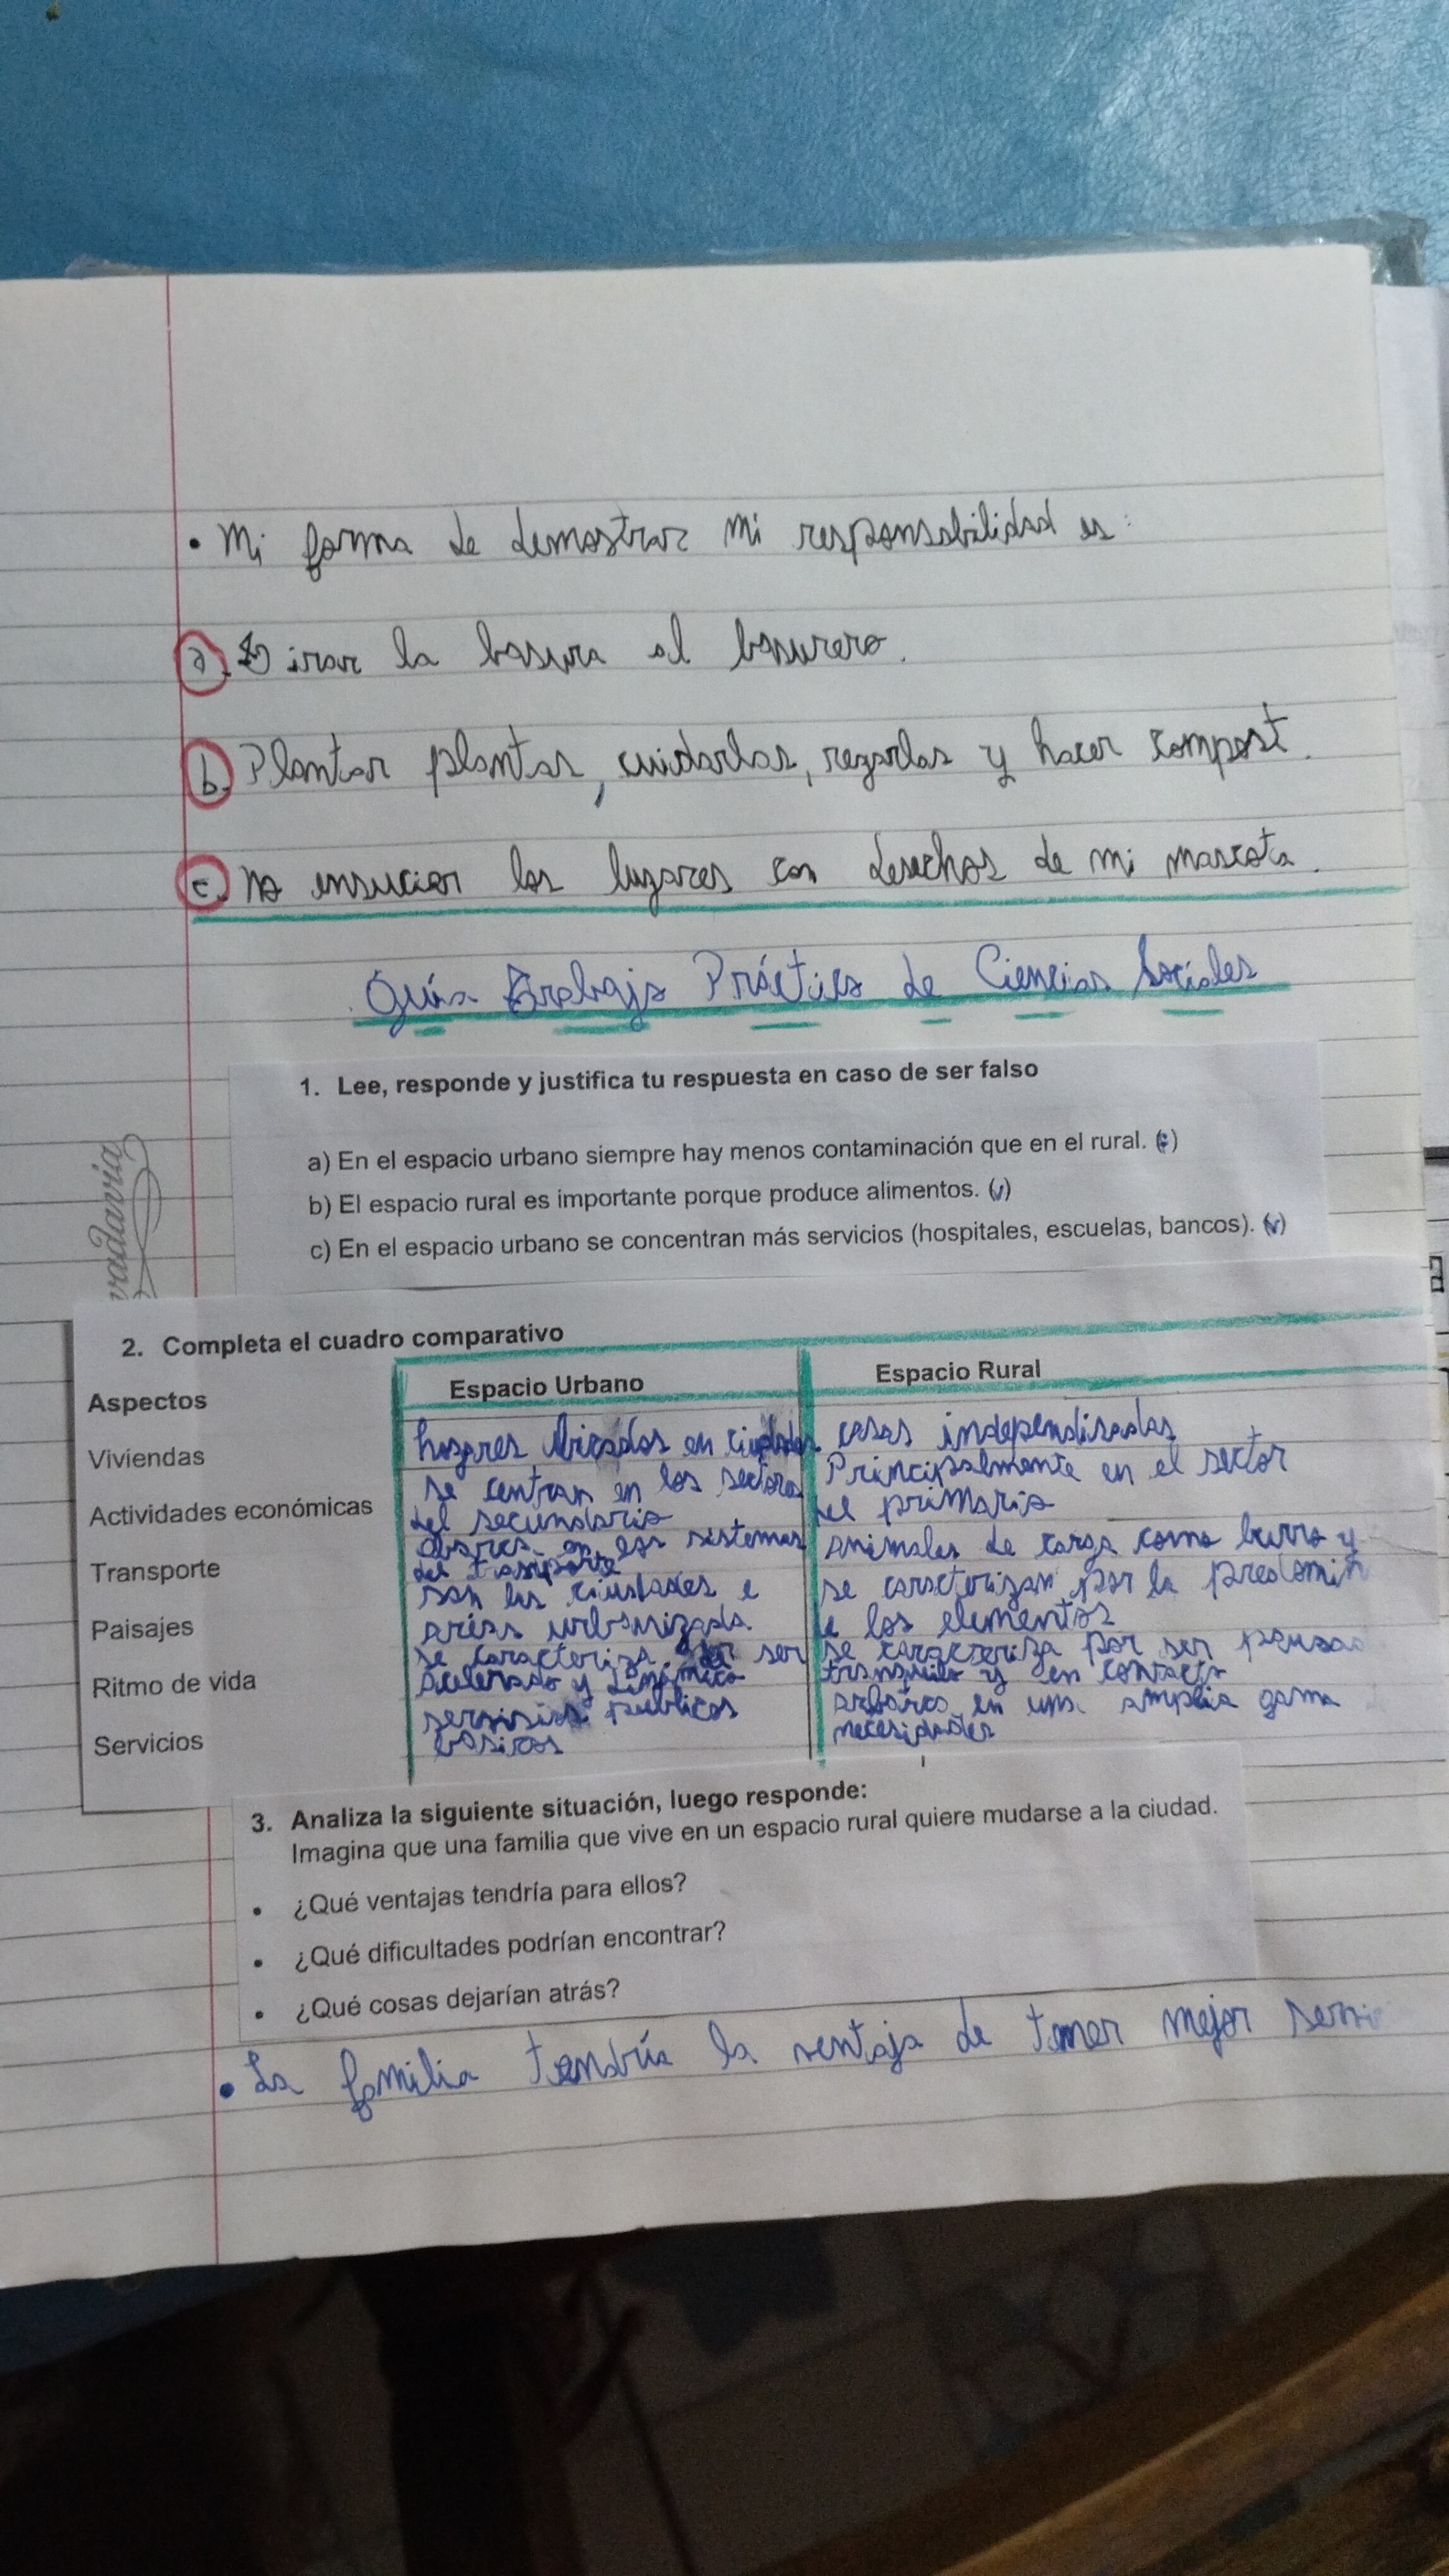 • Mi forma de demostrar mi responsabilidad es:
a. Tirar la basura al basurero.
b. Plantar plantas, cuidarlas, regarlas y hacer compost.
c. no ensuciar los lugares con desechos de mi mascota.
Guía Trabajo Práctico de Ciencias Sociales
1. Lee, responde y justifica tu respuesta en caso de ser falso
a) En el espacio urbano siempre hay menos contaminación que en el rural. (f)
b) El espacio rural es importante porque produce alimentos. (v)
c) En el espacio urbano se concentran más servicios (hospitales, escuelas, bancos). (v)
vadavia
2. Completa el cuadro comparativo
Aspectos Espacio Urbano Espacio Rural
Viviendas hogares ubicados en ciudades casas independisadas
Actividades económicas se centran en los sectores del secundario Principalmente en el sector del primario
Transporte en los sistemas del transporte animales de carga como burro y
Paisajes son las ciudades e áreas urbanizada. se caracterizan por la predomin de los elementos
Ritmo de vida se caracteriza por ser acelerado y dinámico se caracteriza por ser pausad tranquilo y en contacto
Servicios servisios publicos basicos en una amplia gama necesidades
3. Analiza la siguiente situación, luego responde:
Imagina que una familia que vive en un espacio rural quiere mudarse a la ciudad.
• ¿Qué ventajas tendría para ellos?
• ¿Qué dificultades podrían encontrar?
• ¿Qué cosas dejarían atrás?
• La familia tendría la ventaja de tener mejor servi